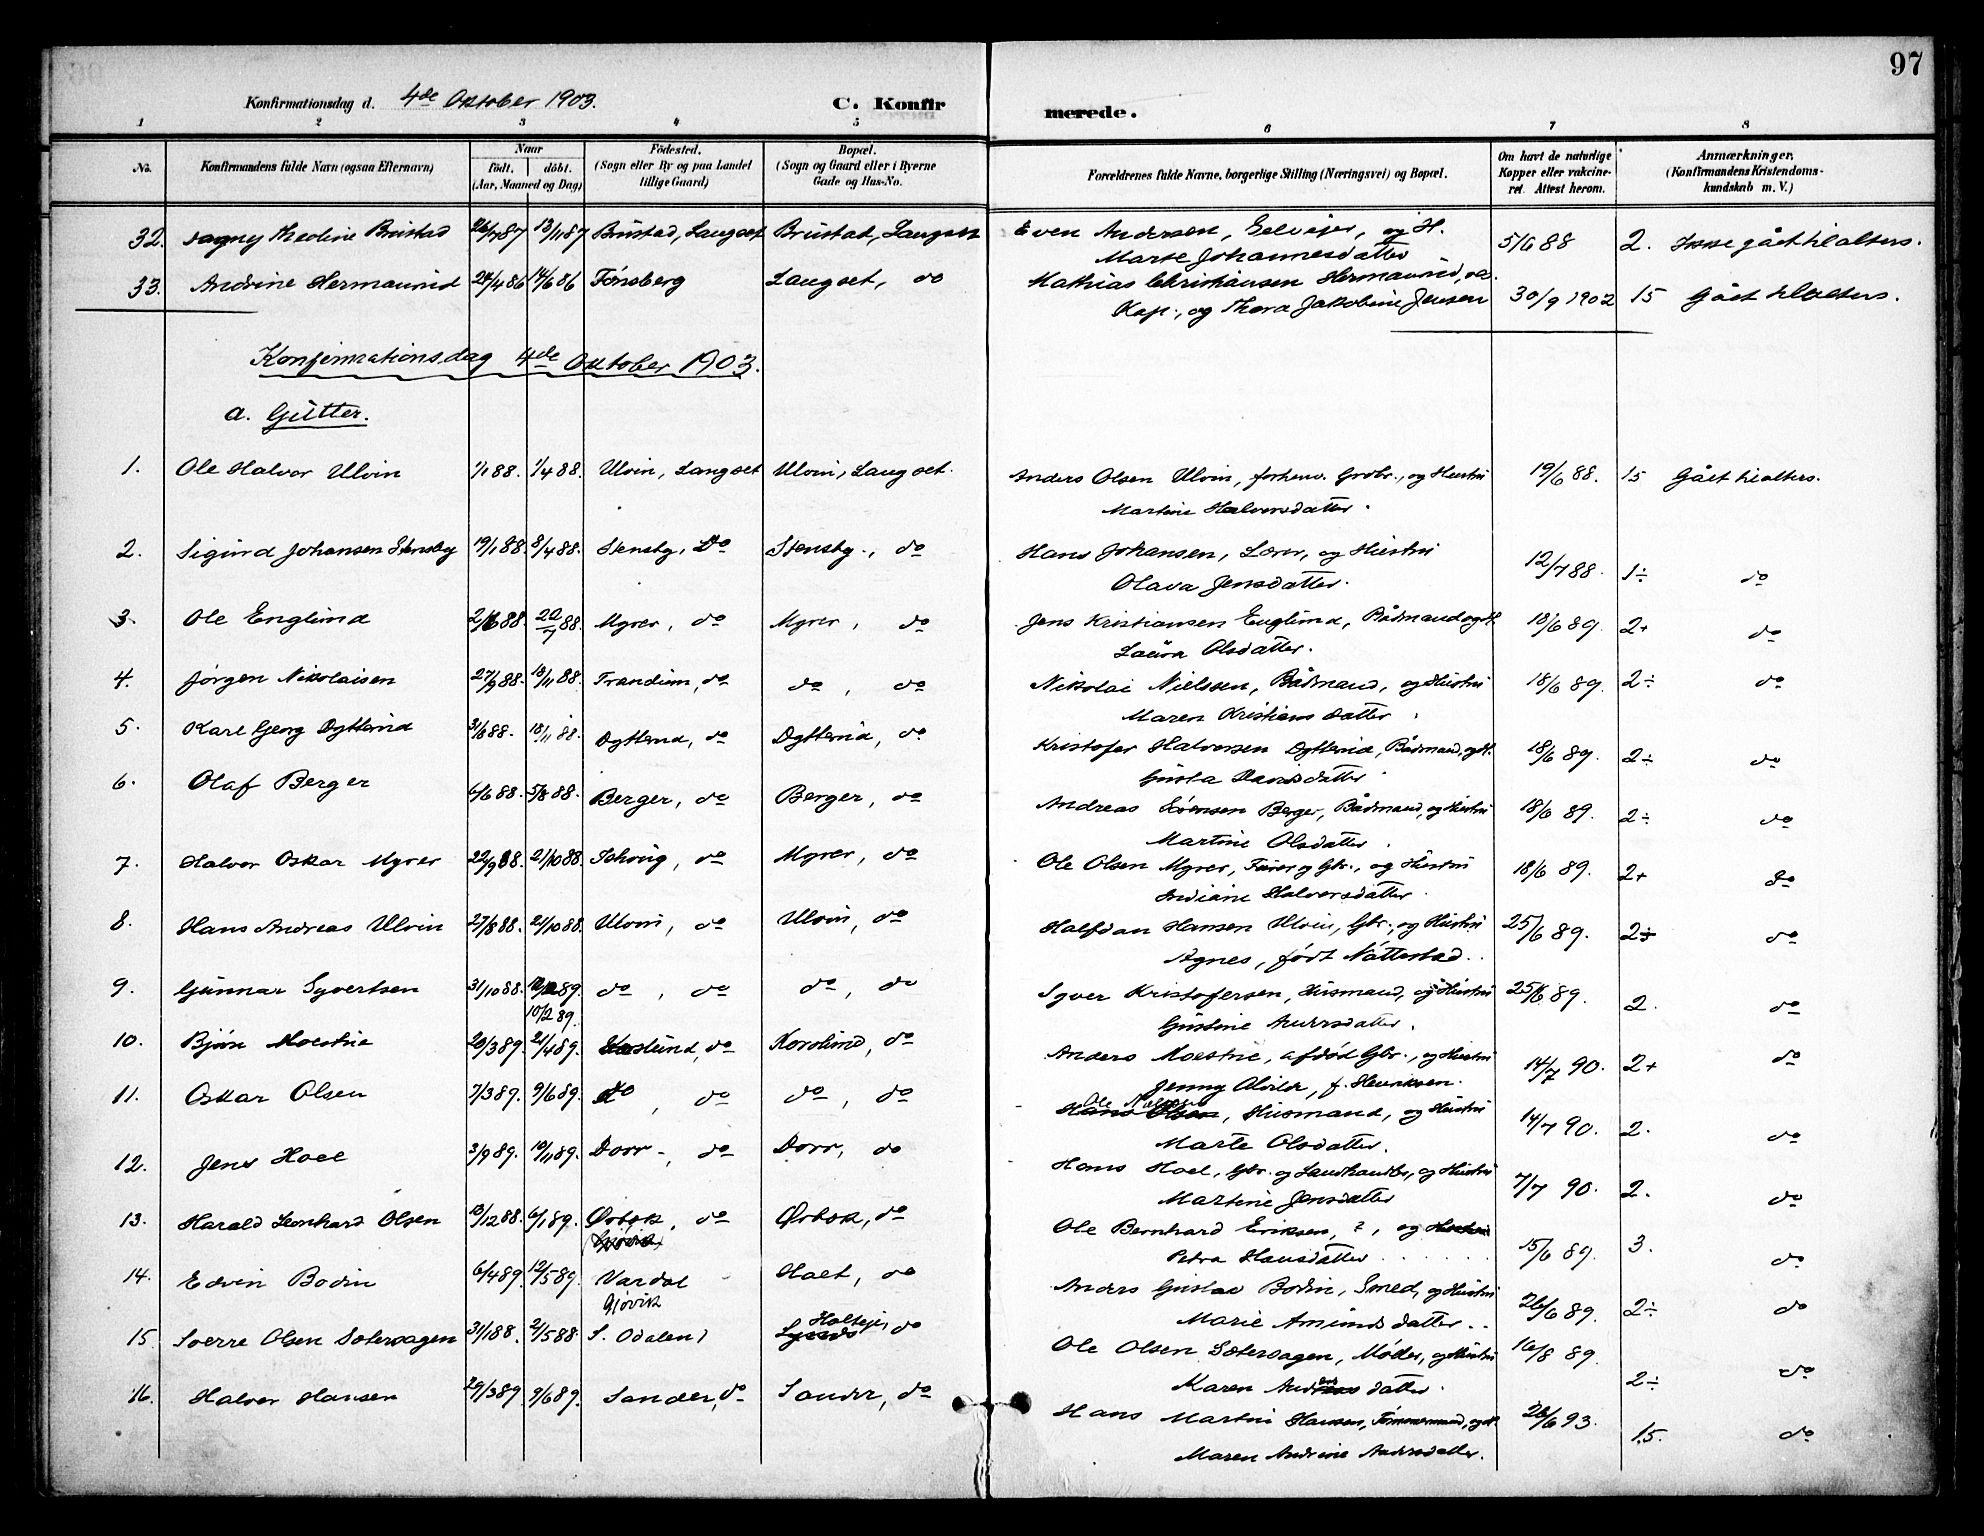 97
Konfirmationsdag d. 4de Oktober 1903. C. Konfir merede.
1 2 3 4 5 6 7 8
No. Konfirmandens fulde Navn (ogsaa Efternavn) Naar født. døbt. (Aar, Maaned og Dag) Fødested. (Sogn eller By og paa Landet tillige Gaard) Bopæl. (Sogn og Gaard eller i Byerne Gade og Hus-No. Forældrenes fulde Navne, borgerlige Stilling (Næringsvei) og Bopæl. Om havt de naturlige Kopper eller vakcineret. Attest herom. Anmærkninger. (Konfirmandens Kristendomskundskab m. V.)
32. Dagny Thedine Brustad 26/7 87 13/11 87 Brustad, Langset Brustad, Langset Even Andersen, Selveier, og H. 5/6 88 2. Ikke gået til alters.
Marte Johannesdatter
33. Andrine Hermanrud 24/4 86 14/6 86 Tønsberg Langset, do Mathias Christiansen Hermanrud,
Kap., og Thora Jakobine Jensen 30/9 1902 15 Gået til alters.
Konfirmationsdag 4de Oktober 1903.
a. Gutter.
1. Ole Halvor Ulvin 1/1 88. 1/4 88. Ulvin, Langset Ulvin, Langset. Anders Olsen Ulvin, forhenv. Grdbr., og Hustru 19/6 88. 15 Gået til alters.
Martine Halvorsdatter.
2. Sigurd Johansen Stensby 19/1 88. 8/4 88. Stensby, Do Stensby., do Hans Johansen, Lærer, og Hustru 12/7 88. 1÷ do
Olava Jensdatter.
3. Ole Englund 2/6 88. 22/7 88. Myrer, do Myrer, do Jens Kristiansen Englund, Bådmand og H. 18/6 89. 2+ do
Laura Olsdatter.
4. Jørgen Nikolaisen 27/9 88. 18/11 88. Trandum, do do, do Nikolai Nielssen, Bådmand, og Hustru 18/6 89. 2÷ do
Maren Kristiansdatter.
5. Karl Georg Dytterud 31/6 88. 18/11 88. Dytterud, do Dytterud, do Kristofer Halvorsen Dytterud, Bådmand, og H. 18/6 89. 2÷ do
Gusta Hansdatter.
6. Olaf Berger 6/6 88. 5/8 88. Berger, do Berger, do Andreas Sørensen Berger, Bådmand, og Hustru 18/6 89. 2÷ do
Martine Olsdatter.
7. Halvor Oskar Myrer 22/9 88. 21/10 88. do Myrer, do Ole Olsen Myrer, Gbr., og Hustru 18/6 89. 2+ do
Indiane Halvorsdatter.
8. Hans Andreas Ulvin 27/8 88. 21/10 88. Ulvin, do Ulvin, do Halfdan Hansen Ulvin, Gbr., og Hustru 25/6 89. 2÷ do
Agnes, født Nåttestad.
9. Gunnar Syvertsen 31/10 88. 10/2 89. do, do do, do Syver Kristofersen, Husmand, og Hustru 25/6 89. 2. do
Gustine Andersdatter.
10. Bjørn Moestue 20/3 89. 21/4 89. do Korslund, do Anders Moestue, afdød Gbr., og Hustru 14/7 90. 2+ do
Jenny Alvilde, f. Henriksen.
11. Oskar Olsen 7/3 89. 9/6 89. do, do do, do Ole Husmand, og Hustru 14/7 90. 2. do
Marte Olsdatter.
12. Jens Hoel 3/9 89. 10/11 89. Dorr, do Dorr, do Hans Hoel, Gbr. og Landhandler, og Hustru 7/7 90. 2. do
Martine Jensdatter
13. Harald Leonhard Olsen 13/12 88. 6/1 89. Ørbæk, do Ørbæk, do Ole Bernhard Eriksen, ?, og 15/6 89. 3. do
(Gjøvik) Petra Hansdatter
14. Edvin Bodin 6/4 89. 12/5 89. Vardal Hoel, do Anders Gustav Bodin, Smed, og Hustru 26/6 89. 2÷ do
Gjøvik Marie Amundsdatter..
15. Sverre Olsen Sætersagen 31/1 88. 21/5 88. S. Odalen Holtejer do Ole Olsen Sætersagen, Møller, og Hustru 16/8 89 2÷ do
Karen datter.
16. Halvor Hansen 29/3 89. 9/6 89. Sander, do Sander, do Hans Martin Hansen, Tømmermand, og H. 26/6 93. 15. do
Maren Andrine Andersdatter.